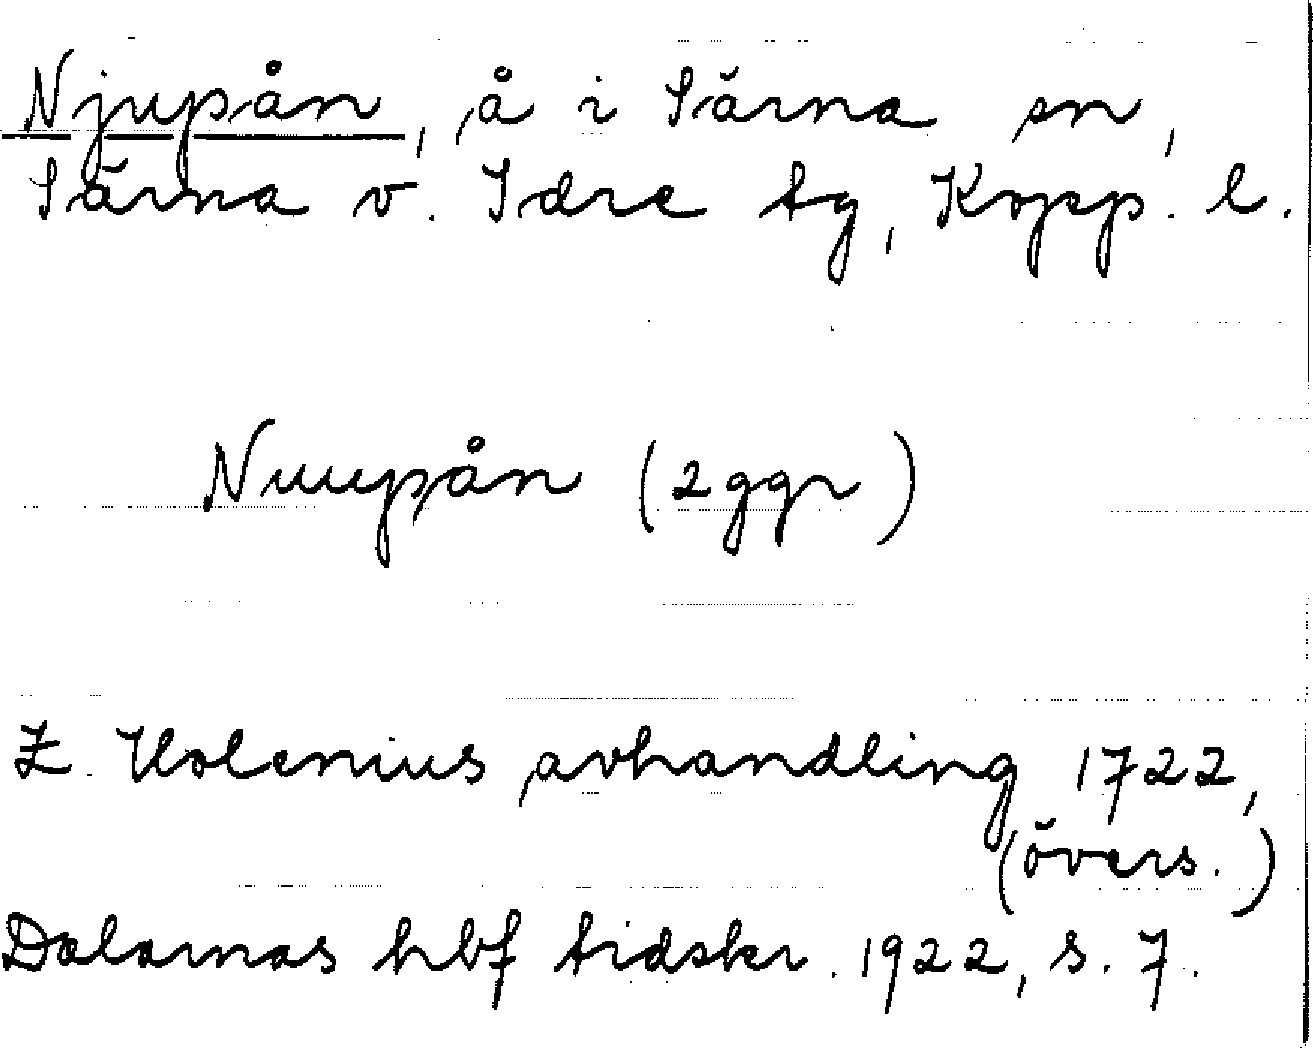 Njupån, å i Särna sn,
Särna o. Idre tg, Kopp. l.
Nuupån (2 ggr)
E. Holenius avhandling 1722,
(övers.)
Dalarnas hbf tidskr. 1922, s. 7.